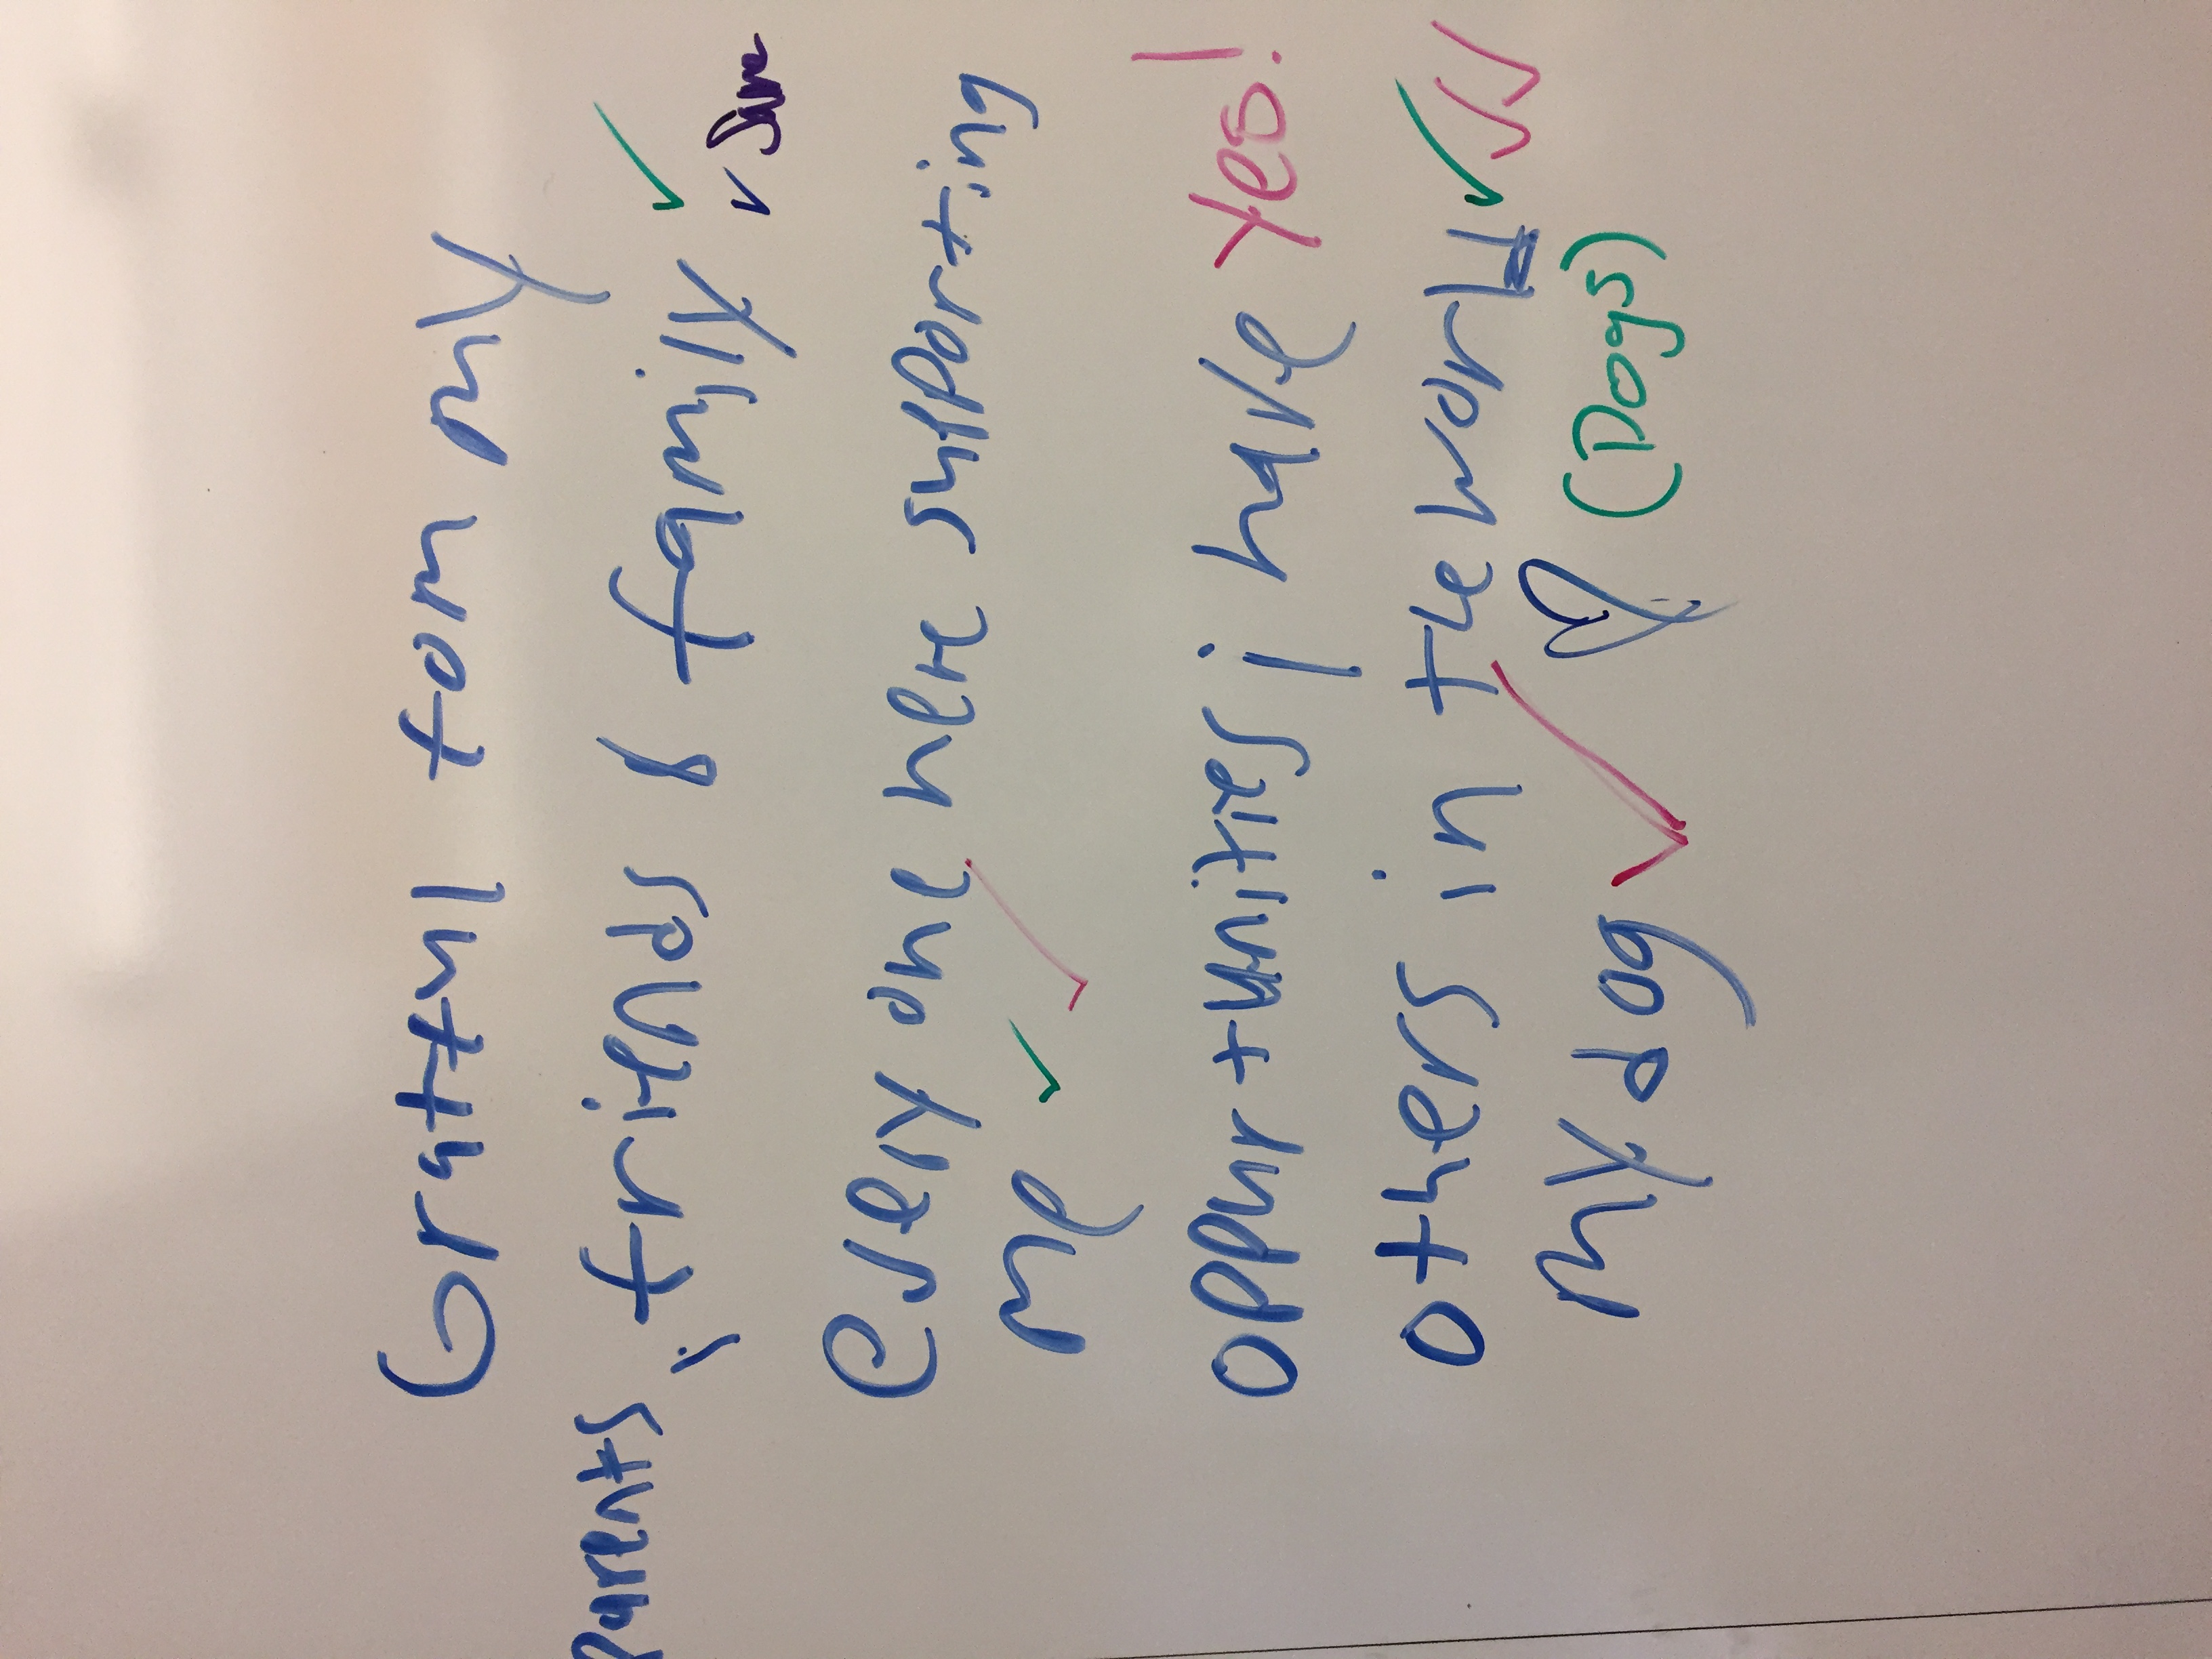 Gratful for my
parents, friends & family
Everyone here supporting
me
oppurtunities i have Yes!
others in the world
my dog ♡ (Dogs)